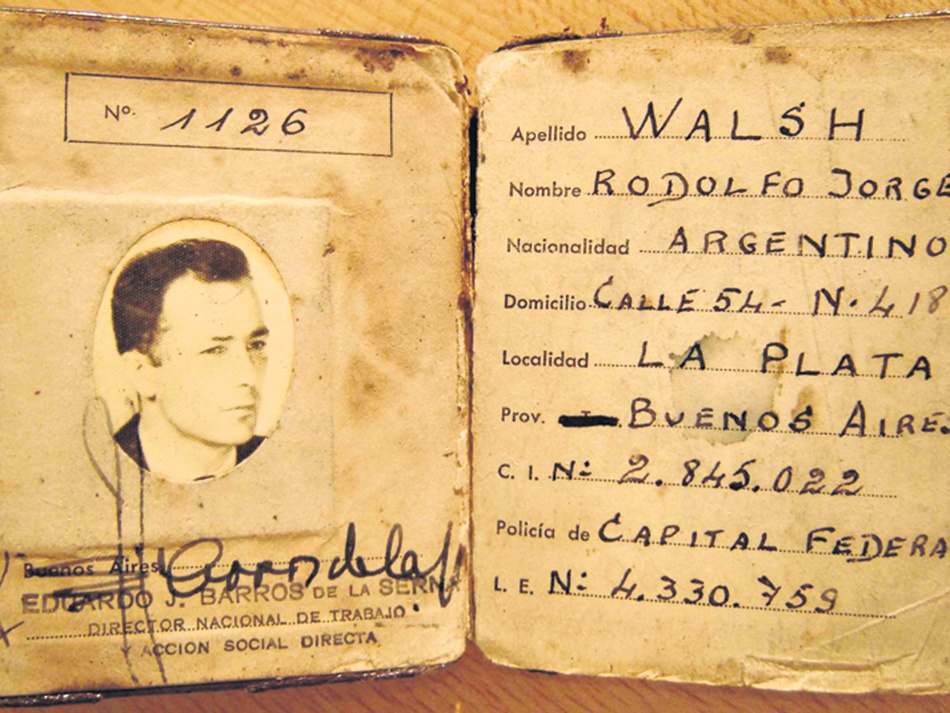 Nº. 1126
Buenos Aires,
EDUARDO J. BARROS DE LA SERNA
DIRECTOR NACIONAL DE TRABAJO
Y ACCION SOCIAL DIRECTA
Apellido WALSH
Nombre RODOLFO JORGE
Nacionalidad ARGENTINO
Domicilio CALLE 54 - N. 418
Localidad LA PLATA
Prov. BUENOS AIRES
C. I. Nº 2.845.022
Policía de CAPITAL FEDERA
L. E. Nº 4.330.759